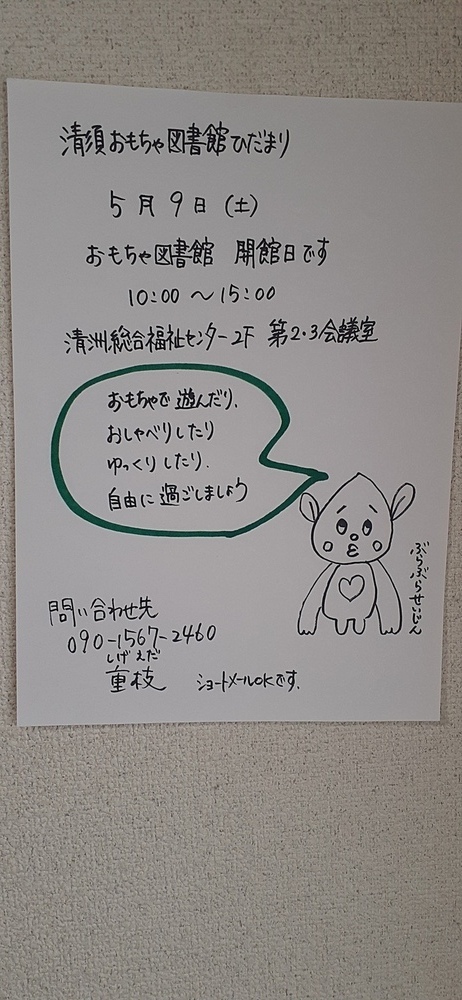 清須おもちゃ図書館ひだまり
5月9日(土)
おもちゃ図書館 開館日です
10:00～15:00
清洲総合福祉センター2F 第2・3会議室
おもちゃで遊んだり、
おしゃべりしたり
ゆっくりしたり、
自由に過ごしましょう
ぶらぶらせいじん
問い合わせ先
090-1567-2460
しげえだ
重枝 ショートメールOKです。